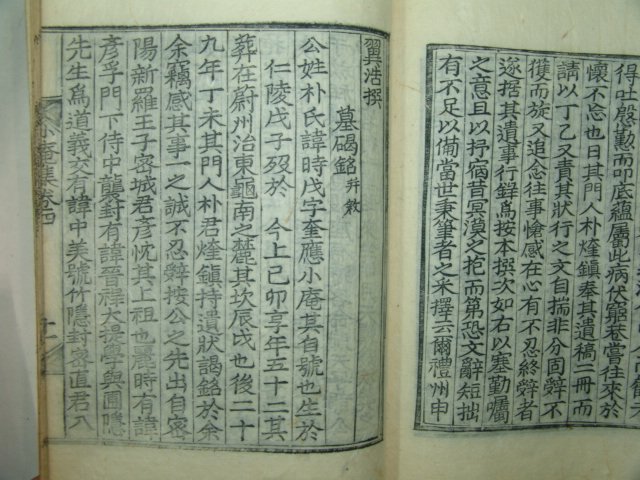 得吐盤勲而叩底蘊屬此病伏窮巷嘗往來於
懷不忘也日其門人朴煃鎭奉其遺稿二冊而
請以丁乙又責其狀行之文自揣非分固辭不
獲而旋又追念往事愴感在心有不忍終辭者
遂捨其遺事行錄爲按本撰次如右以塞勤囑
之意且以抒宿昔冥漠之抱而第恐文辭短拙
有不足以備當世秉筆者之采擇云爾禮州申
翼浩撰
墓碣銘 幷敘
公姓朴氏諱時戊字奎應小庵其自號也生於
仁陵戊子歿於 今上己卯享年五十二其
葬在蔚州治東龜南之麓其坎辰戌也後二十
九年丁未其門人朴君煃鎭持遺狀謁銘於余
余竊感其事一之誠不忍辭按公之先出自密
陽新羅王子密城君彥忱其上祖也麗時有諱
彥孚門下侍中襲封有諱晉祿大提學與圃隱
先生爲道義交有諱中美號竹隱封密直君八
小庵集卷四
十一